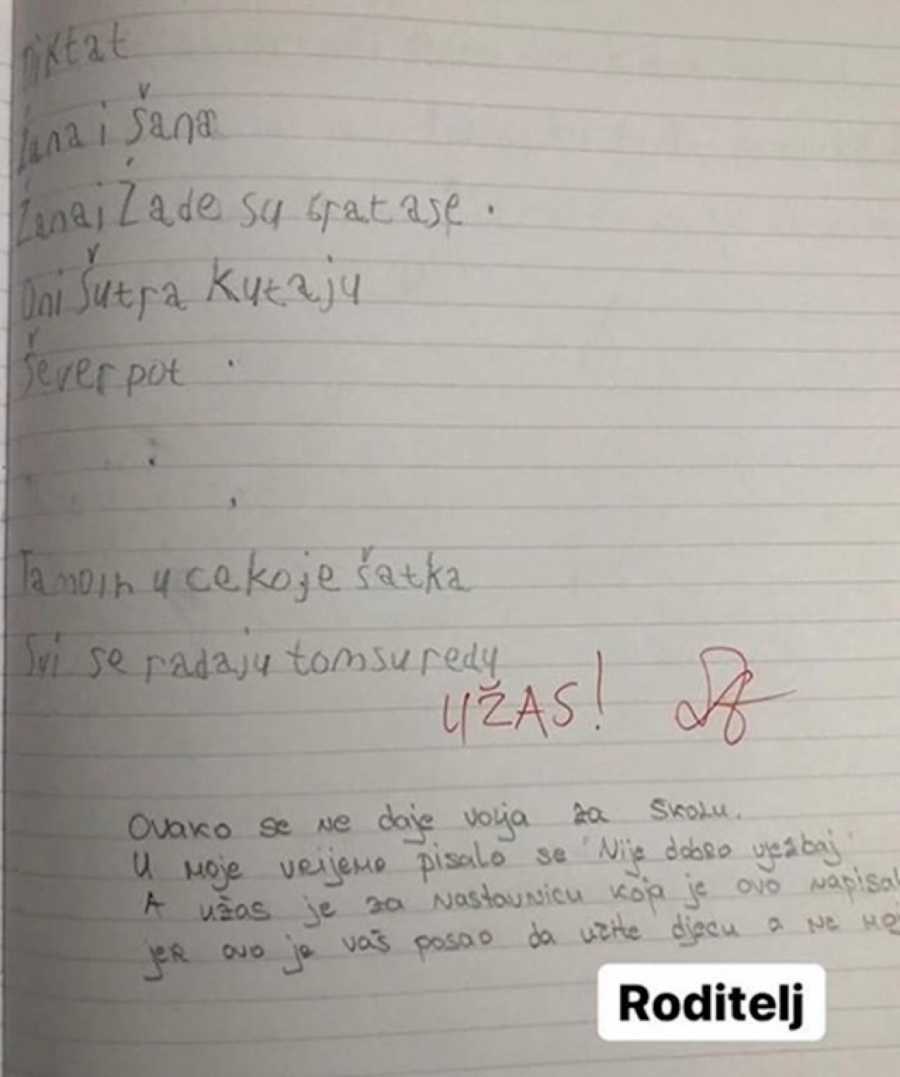 Diktat
Žana i Šana
Žana i Žade su spatase.
Oni Šutra kutaju
Šever pot.
Tamoih u cekoje šatka
Svi se radaju tomsuredu
UŽAS!
Ovako se ne daje volja za školu.
U moje vrijeme pisalo se "Nije dobro vježbaj"
A užas je za nastavnicu koja je ovo napisal
jer ovo je vaš posao da učite djecu a ne
Roditelj